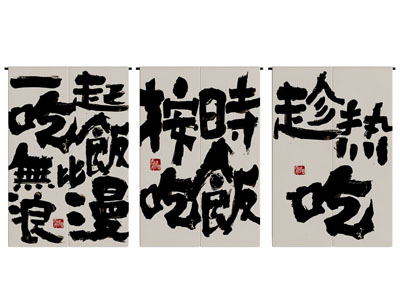 一起
吃飯
無比
浪漫
按時
吃飯
趁热
吃